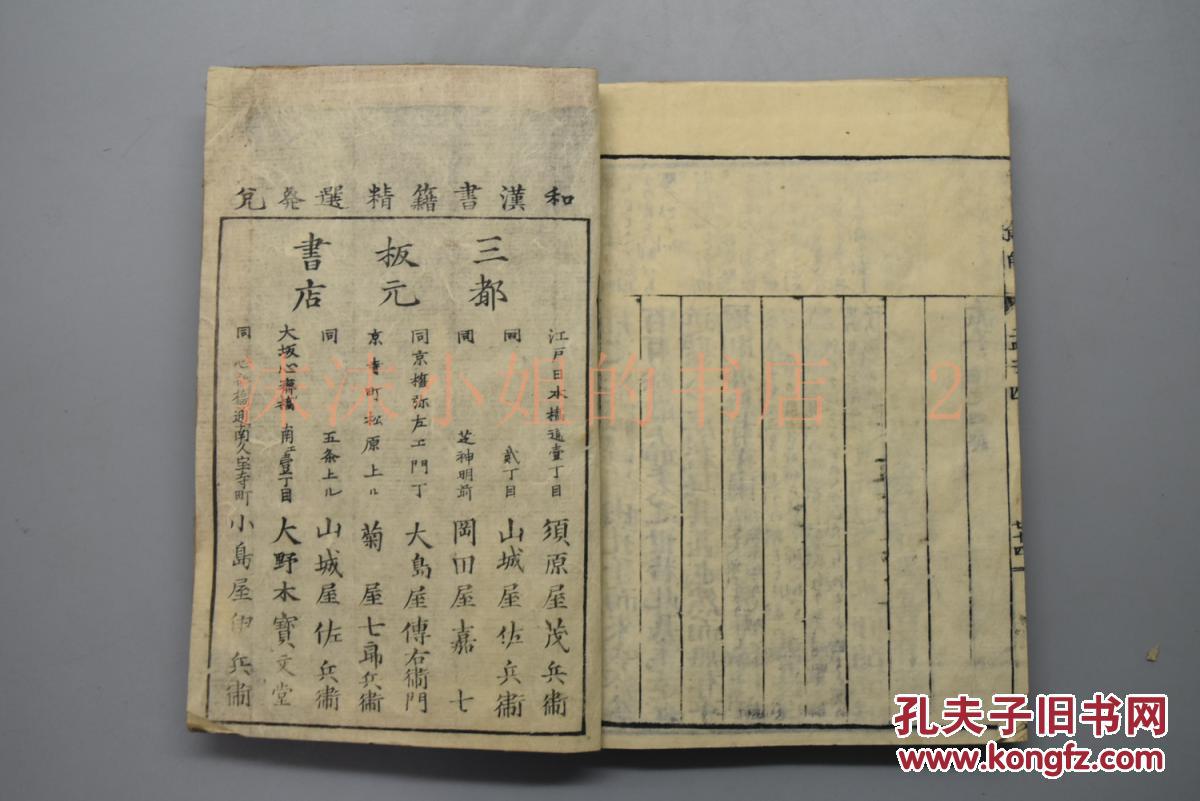 和漢書籍精選発兌
三都
板元
書店
江戸日本橋通壹丁目 須原屋茂兵衛
同 貳丁目 山城屋佐兵衛
同 芝神明前 岡田屋嘉七
同京橋弥左エ門丁 大島屋傳右衛門
京寺町松原上ル 菊屋七郎兵衛
同 五条上ル 山城屋佐兵衛
大坂心斎橋南壹丁目 大野木寶文堂
同 心斎橋通南久宝寺町 小島屋伊兵衛
廿四
沫沫小姐的书店 2
孔夫子旧书网
www.kongfz.com